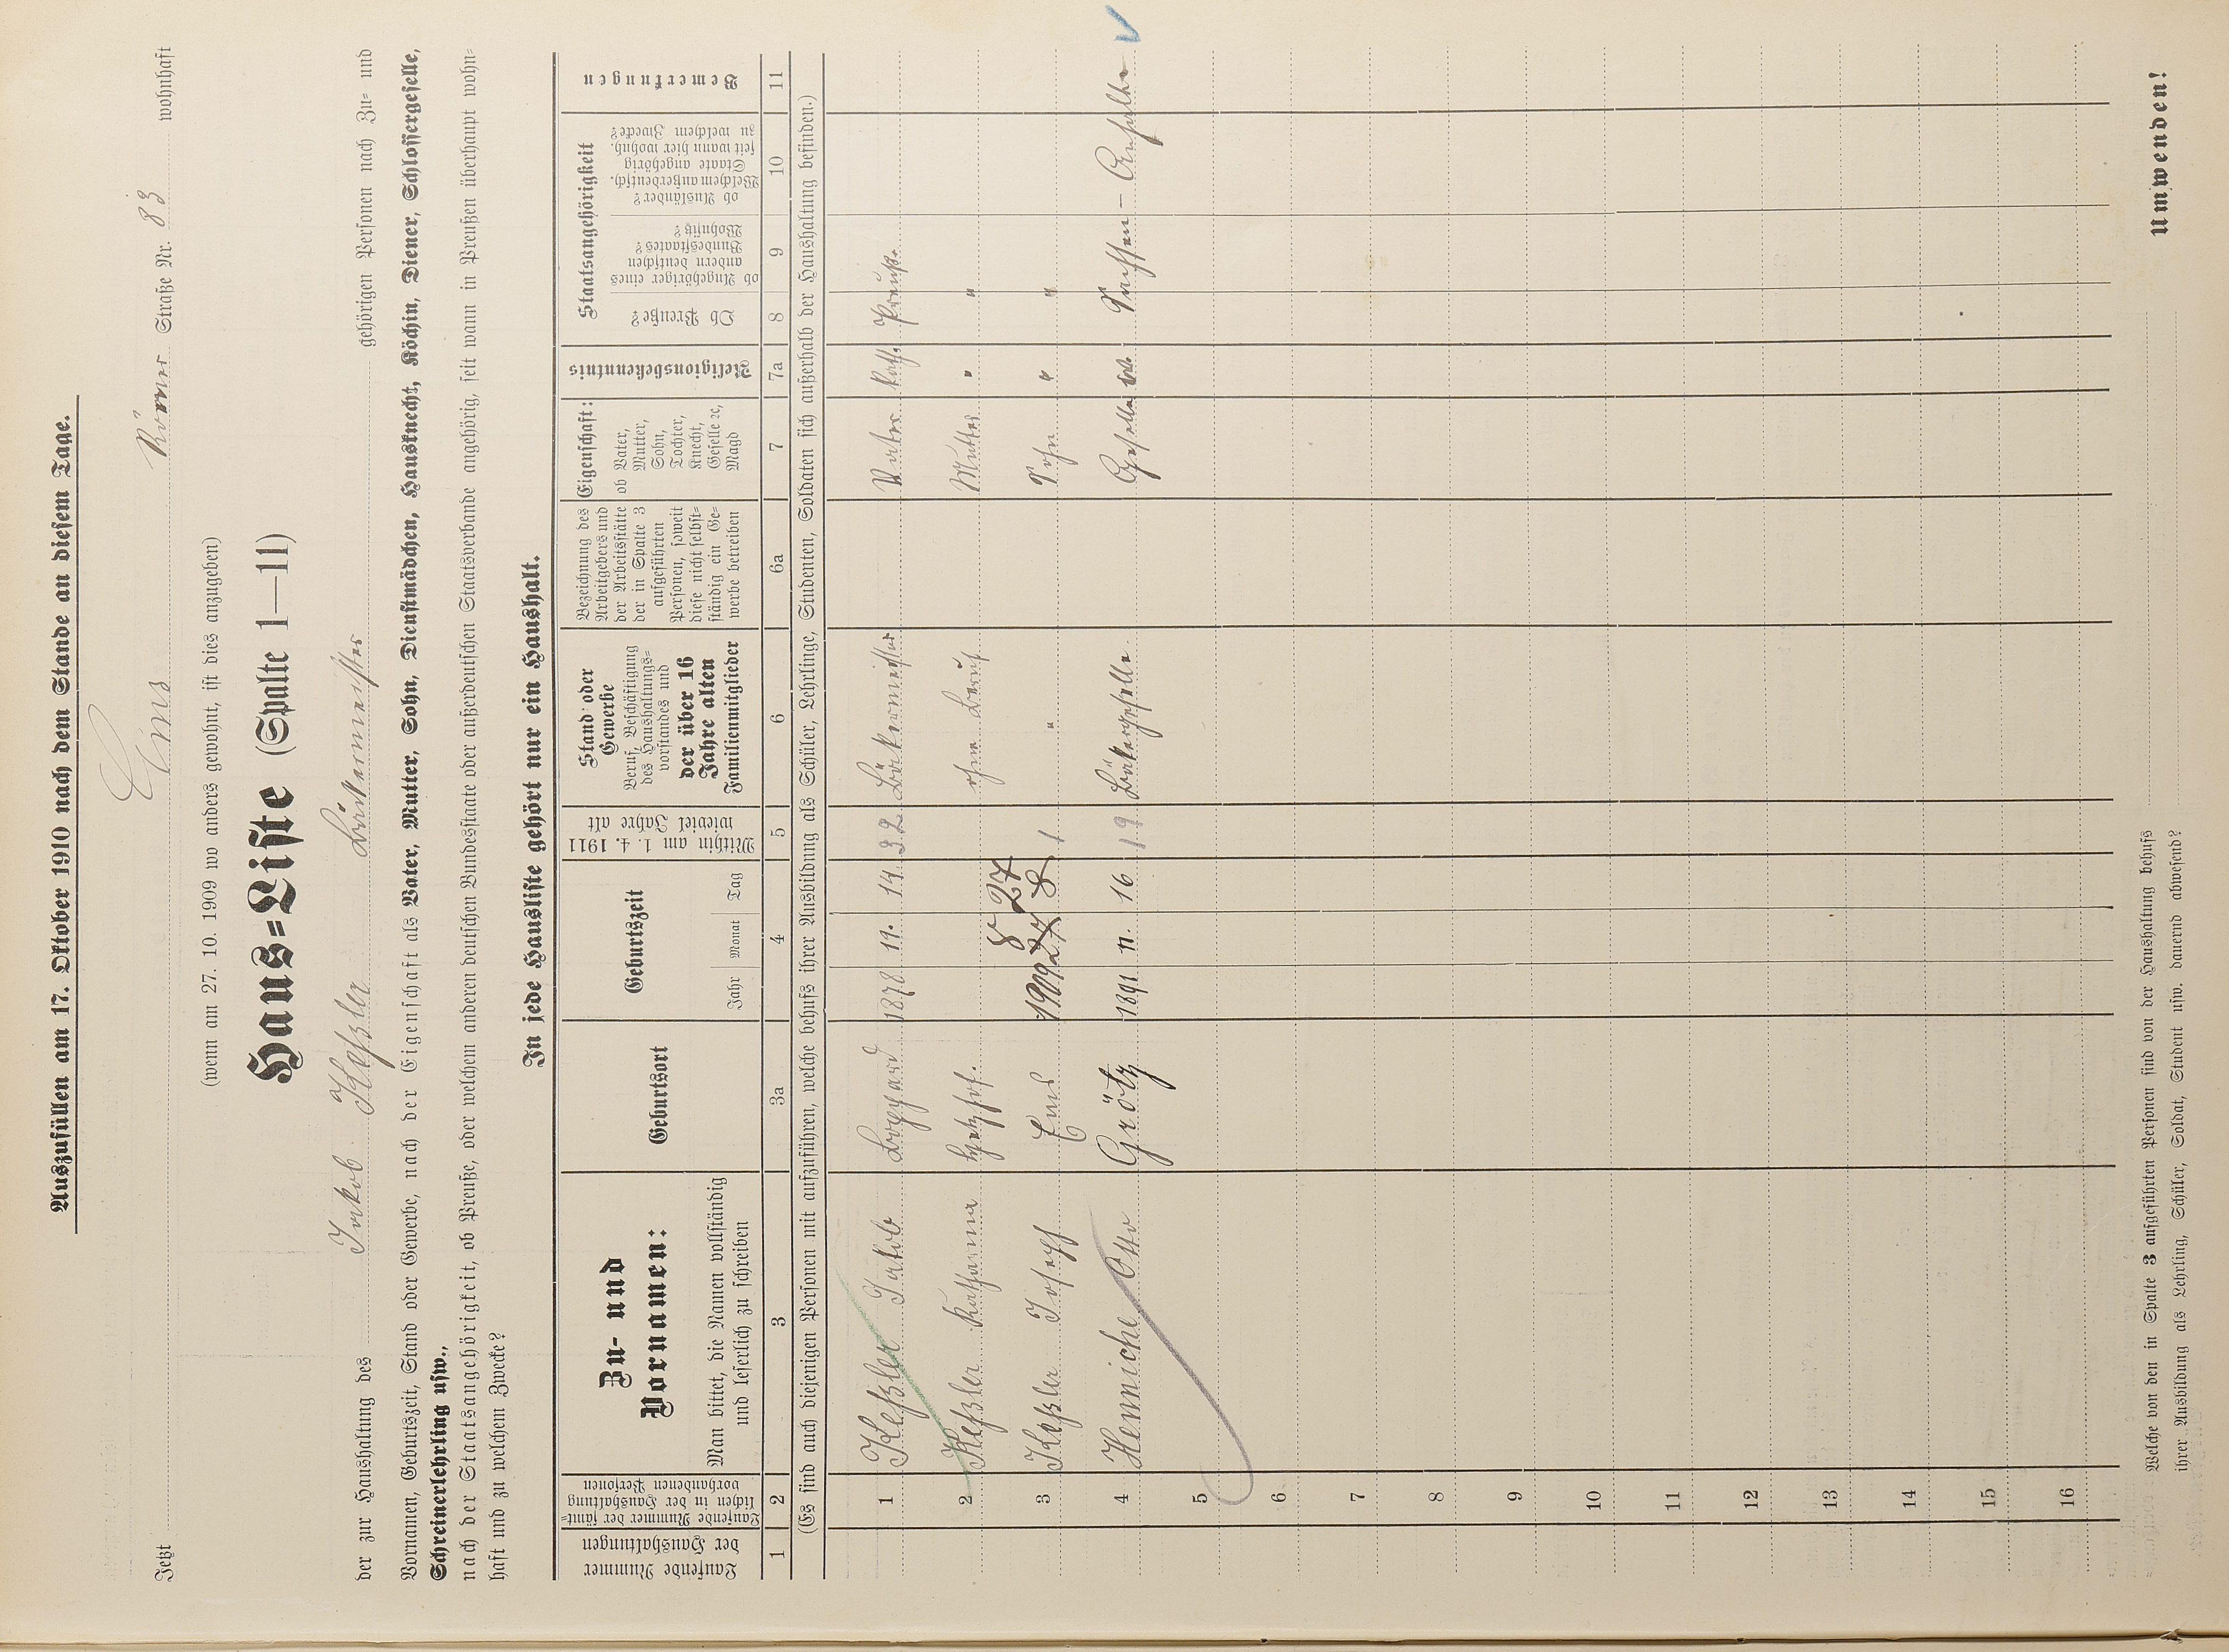 Auszufüllen am 17. Oktober 1910 nach dem Stande an diesem Tage.
Jetzt Ems Römer Straße Nr. 83 wohnhaft
(wenn am 27. 10. 1909 wo anders gewohnt, ist dies anzugeben)
Haus=Liste (Spalte 1—11)
der zur Haushaltung des Jakob Keßler Bäckermeister gehörigen Personen nach Zu= und
Vornamen, Geburtszeit, Stand oder Gewerbe, nach der Eigenschaft als Vater, Mutter, Sohn, Dienstmädchen, Hausknecht, Köchin, Diener, Schlossergeselle,
Schreinerlehrling usw.,
nach der Staatsangehörigkeit, ob Preuße, oder welchem anderen deutschen Bundesstaate oder außerdeutschen Staatsverbande angehörig, seit wann in Preußen überhaupt wohn=
haft und zu welchem Zwecke?
In jede Hausliste gehört nur ein Haushalt.
Laufende Nummer der Haushaltungen
Laufende Nummer der sämt=lichen in der Haushaltung vorhandenen Personen
Zu- und Vornamen:
Man bittet, die Namen vollständig und leserlich zu schreiben
Geburtsort
Geburtszeit
Jahr Monat Tag
Mithin am 1. 4. 1911 wieviel Jahre alt
Stand oder Gewerbe
Beruf, Beschäftigung des Haushaltungs=vorstandes und
der über 16 Jahre alten Familienmitglieder
Bezeichnung des Arbeitgebers und der Arbeitsstätte der in Spalte 3 aufgeführten Personen, soweit diese nicht selbst=ständig ein Ge=werbe betreiben
Eigenschaft:
ob Vater, Mutter, Sohn, Tochter, Knecht, Geselle ꝛc, Magd
Religionsbekenntnis
Staatsangehörigkeit
Ob Preuße?
ob Angehöriger eines andern deutschen Bundesstaates? Wohnsitz?
ob Ausländer? Welchem außerdeutsch. Staate angehörig seit wann hier wohnh. zu welchem Zwecke?
Bemerkungen
1 2 3 3a 4 5 6 6a 7 7a 8 9 10 11
(Es sind auch diejenigen Personen mit aufzuführen, welche behufs ihrer Ausbildung als Schüler, Lehrlinge, Studenten, Soldaten sich außerhalb der Haushaltung befinden.)
1 Keßler Jakob 1878 11. 14. 32 Bäkermeister Vater kath. Preuß.
2 Keßler Katharina ohne Beruf Mutter " "
3 Keßler Joseph Ems 1909 27 8 1 " Sohn " "
8 27
4 Hennicke Otto Grötz 1891 11. 16 19 Bäkergeselle Geselle ev. Sachsen - Anhalter
5
6
7
8
9
10
11
12
13
14
15
16
Welche von den in Spalte 3 aufgeführten Personen sind von der Haushaltung behufs
ihrer Ausbildung als Lehrling, Schüler, Soldat, Student usw. dauernd abwesend?
Umwenden!